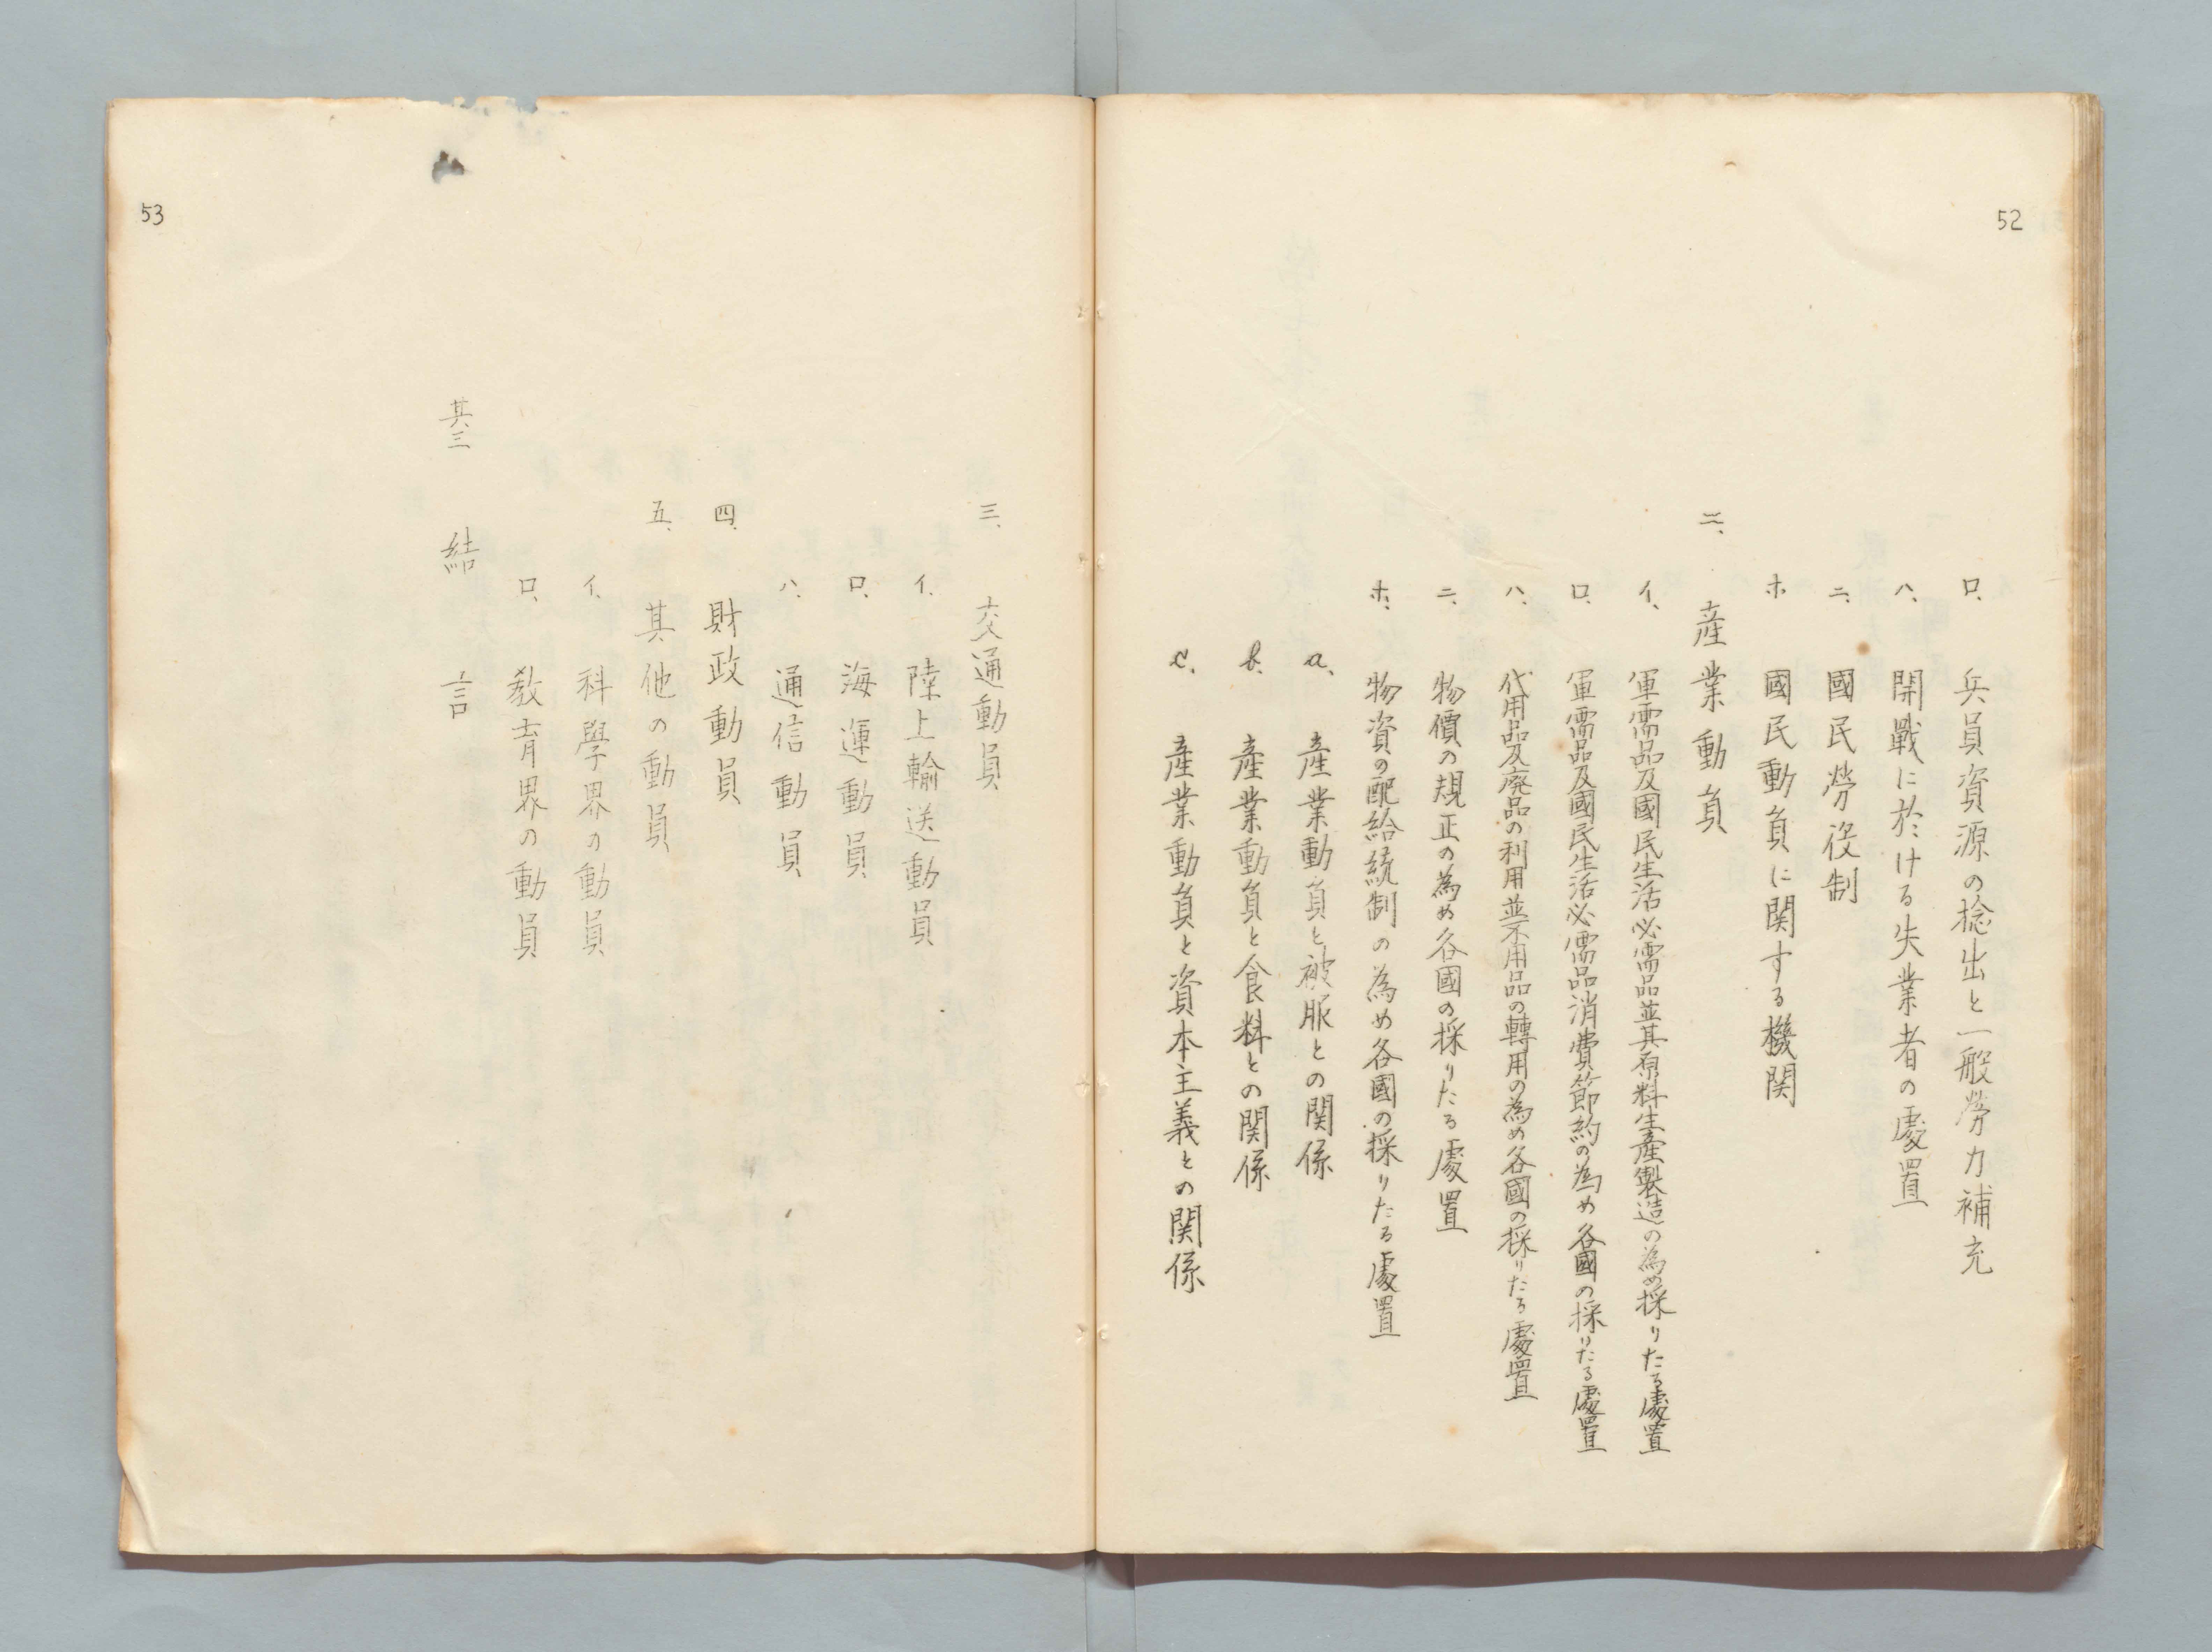 52
ロ、兵員資源の捻出と一般勞力補充
ハ、開戰に於ける失業者の處置
ニ、國民勞役制
ホ、國民動員に関する機関
二、產業動員
イ、軍需品及國民生活必需品並其原料生產製造の為め採りたる處置
ロ、軍需品及國民生活必需品消費節約の為め各國の採りたる處置
ハ、代用品及廃品の利用並不用品の轉用の為め各國の採りたる處置
ニ、物價の規正の為め各國の採りたる處置
ホ、物資の配給統制の為め各國の採りたる處置
a、產業動員と被服との関係
b、產業動員と食料との関係
c、產業動員と資本主義との関係
53
三、交通動員
イ、陸上輸送動員
ロ、海運動員
ハ、通信動員
四、財政動員
五、其他の動員
イ、科學界の動員
ロ、敎育界の動員
其三 結言